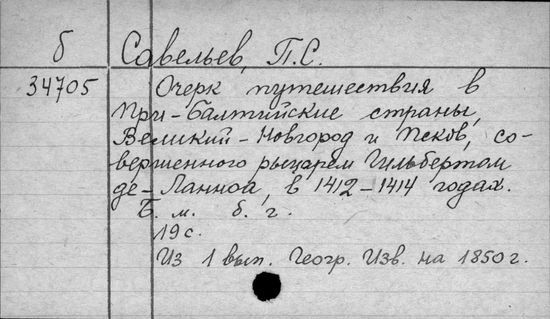 б Савельев, П.С.
34705 Очерк путешествия в
При-Балтийские страны,
Великий-Новгород и Псков, со-
вершенного рыцарем Гильбертом
де-Ланноа, в 1412-1414 годах.
Б. м. б. г.
19 с.
Из 1 вып. Геогр. Изв. на 1850 г.